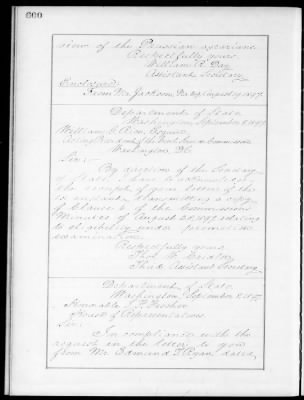 600
view of the Prussian agrarians.
Respectfully yours,
William R. Day
Assistant Secretary.
Enclosure:
From Mr. Jackson, No. August 1897.
Department of State,
Washington, September 8, 1897.
William Rice, Esquire,
Acting President of the Civil Service Commission
Washington, D.C.
Sir:
By direction of the Secretary
of State, I have to acknowledge
the receipt of your letter of the
transmitting a copy
of Clause of the Commission's
Minutes of August 25, 1897, relating
to eligibility under promotion
examinations.
Respectfully yours,
Thos. W. Cridler
Third Assistant Secretary.
Department of State,
Washington, September 8, 1897.
Honorable
House of Representatives.
Sir:
In compliance with the
request in the letter to you
from Mr. Edmund T. Ryan, dated